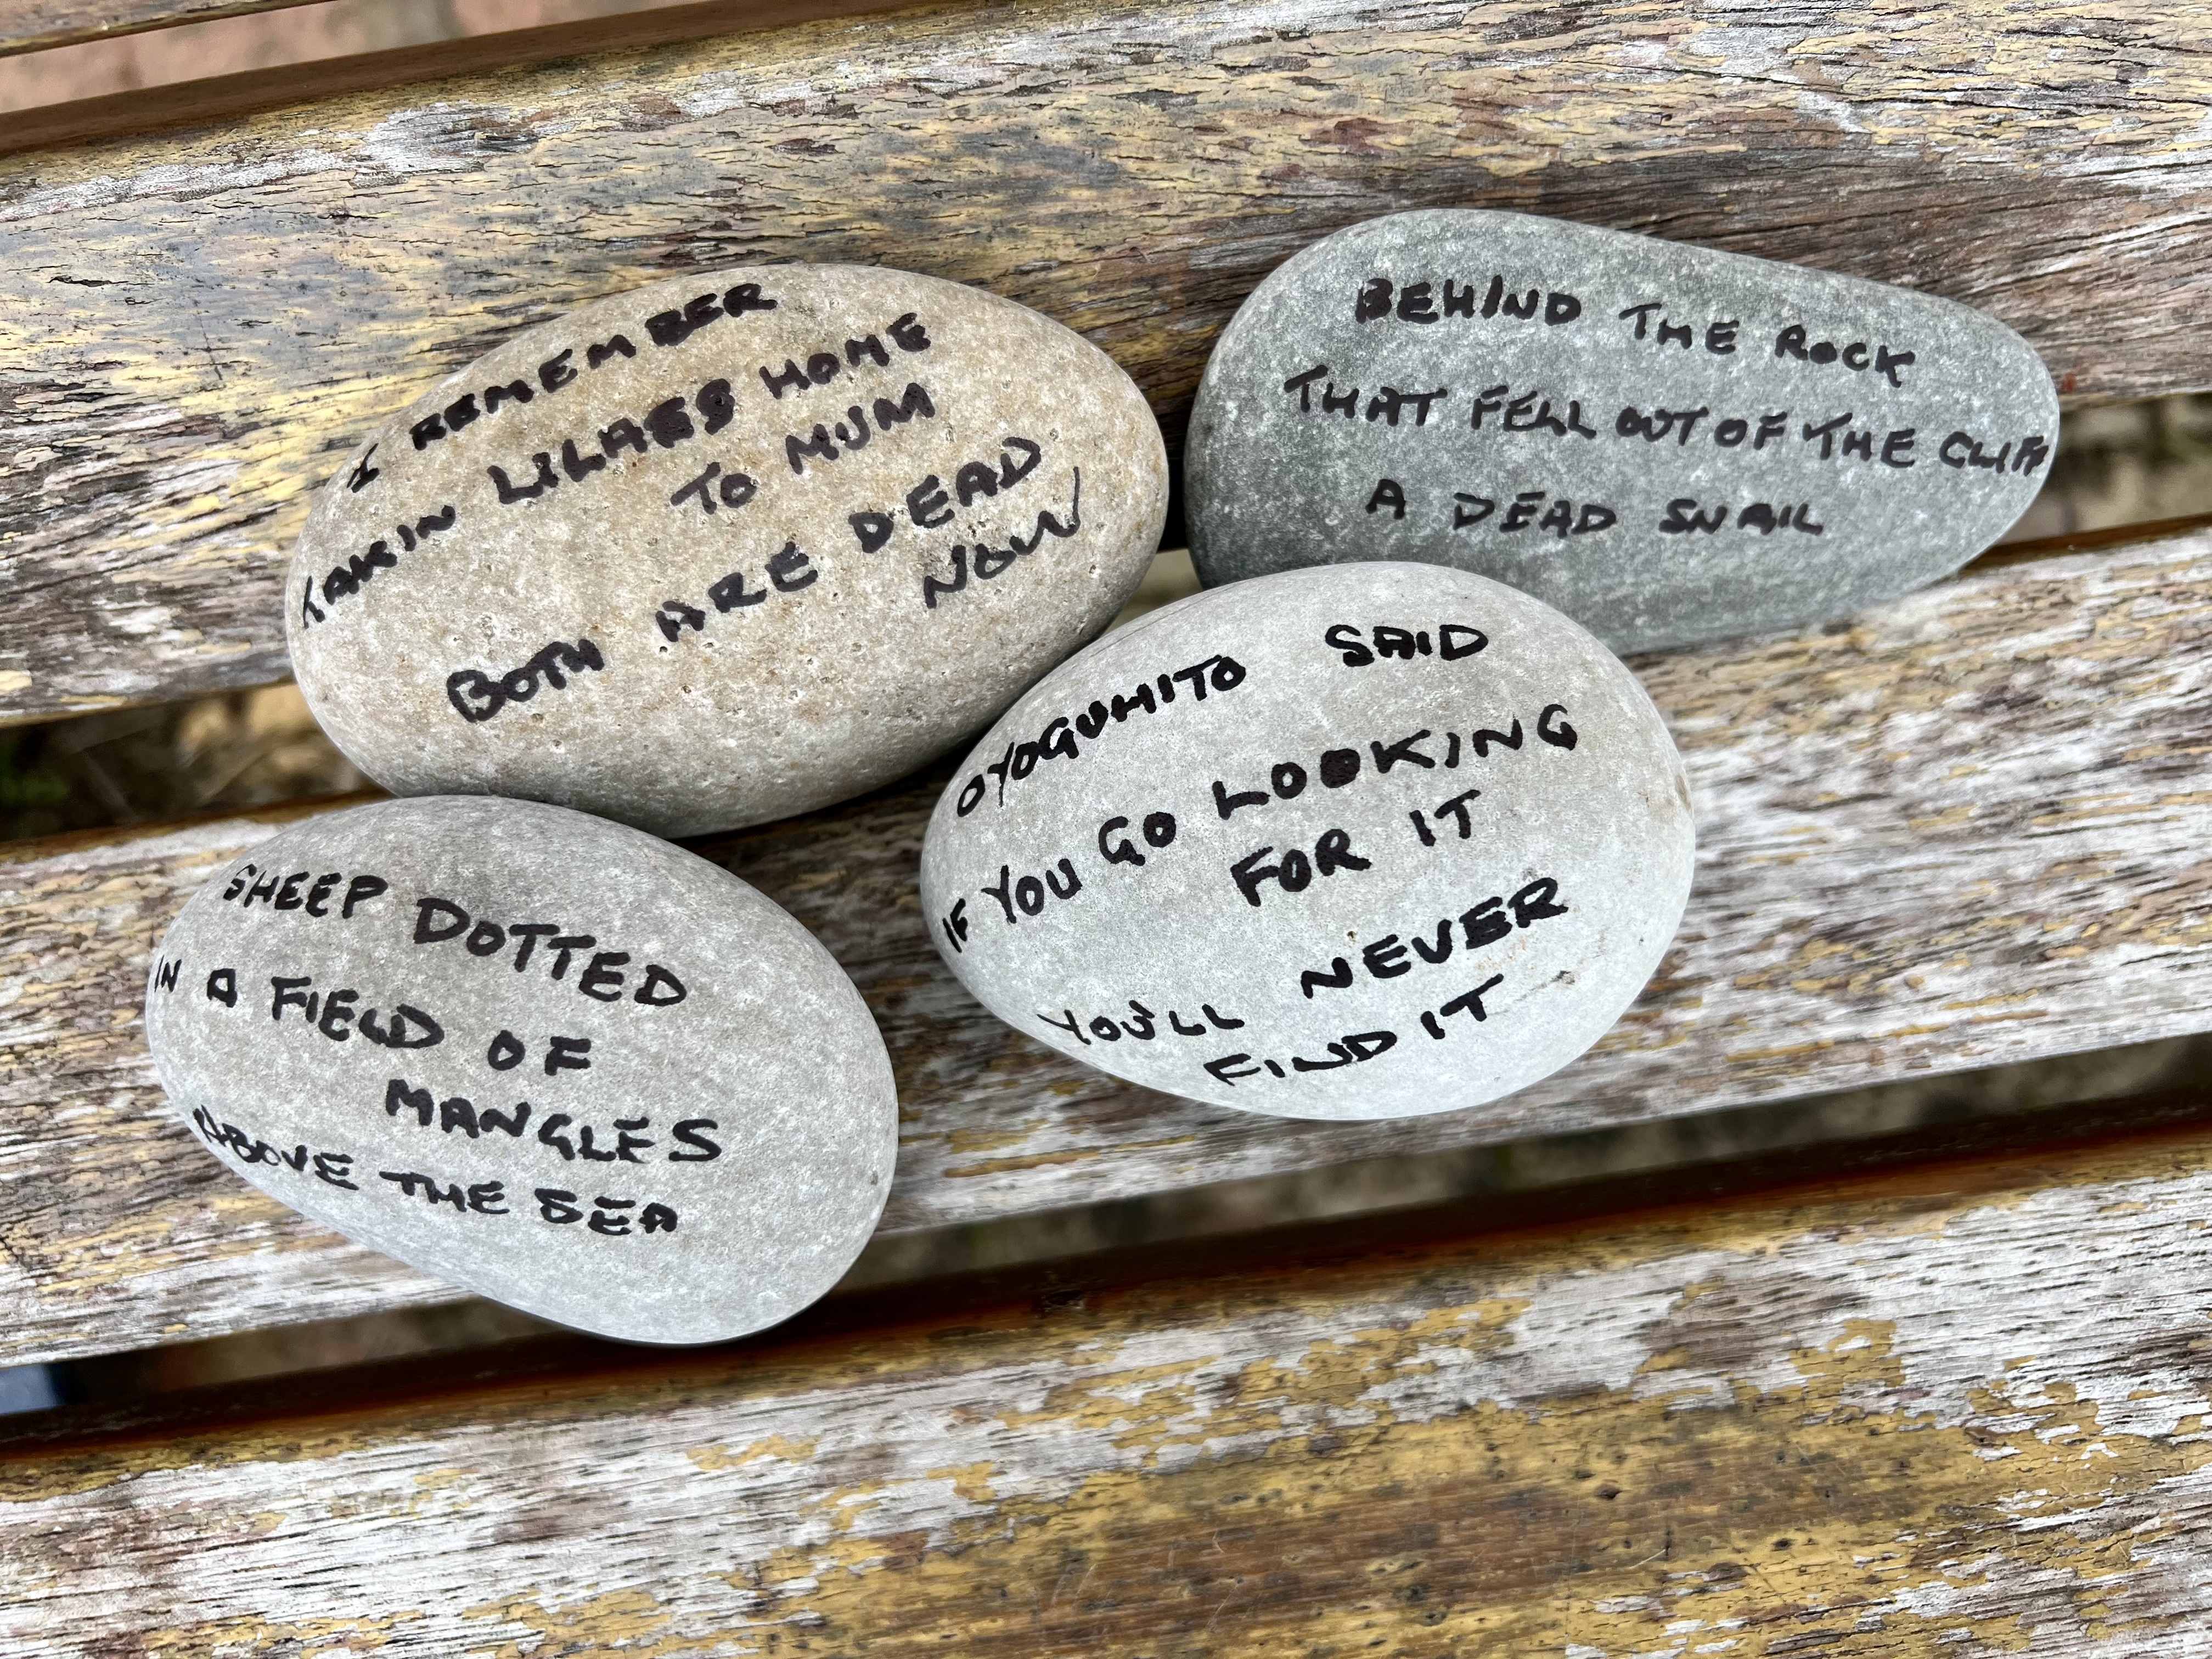 I REMEMBER
TAKIN LILACS HOME
TO MUM
BOTH ARE DEAD
NOW
BEHIND THE ROCK
THAT FELL OUT OF THE CLIFF
A DEAD SNAIL
SHEEP DOTTED
IN A FIELD OF
MANGLES
ABOVE THE SEA
OYOGUHITO SAID
IF YOU GO LOOKING
FOR IT
YOU'LL NEVER
FIND IT